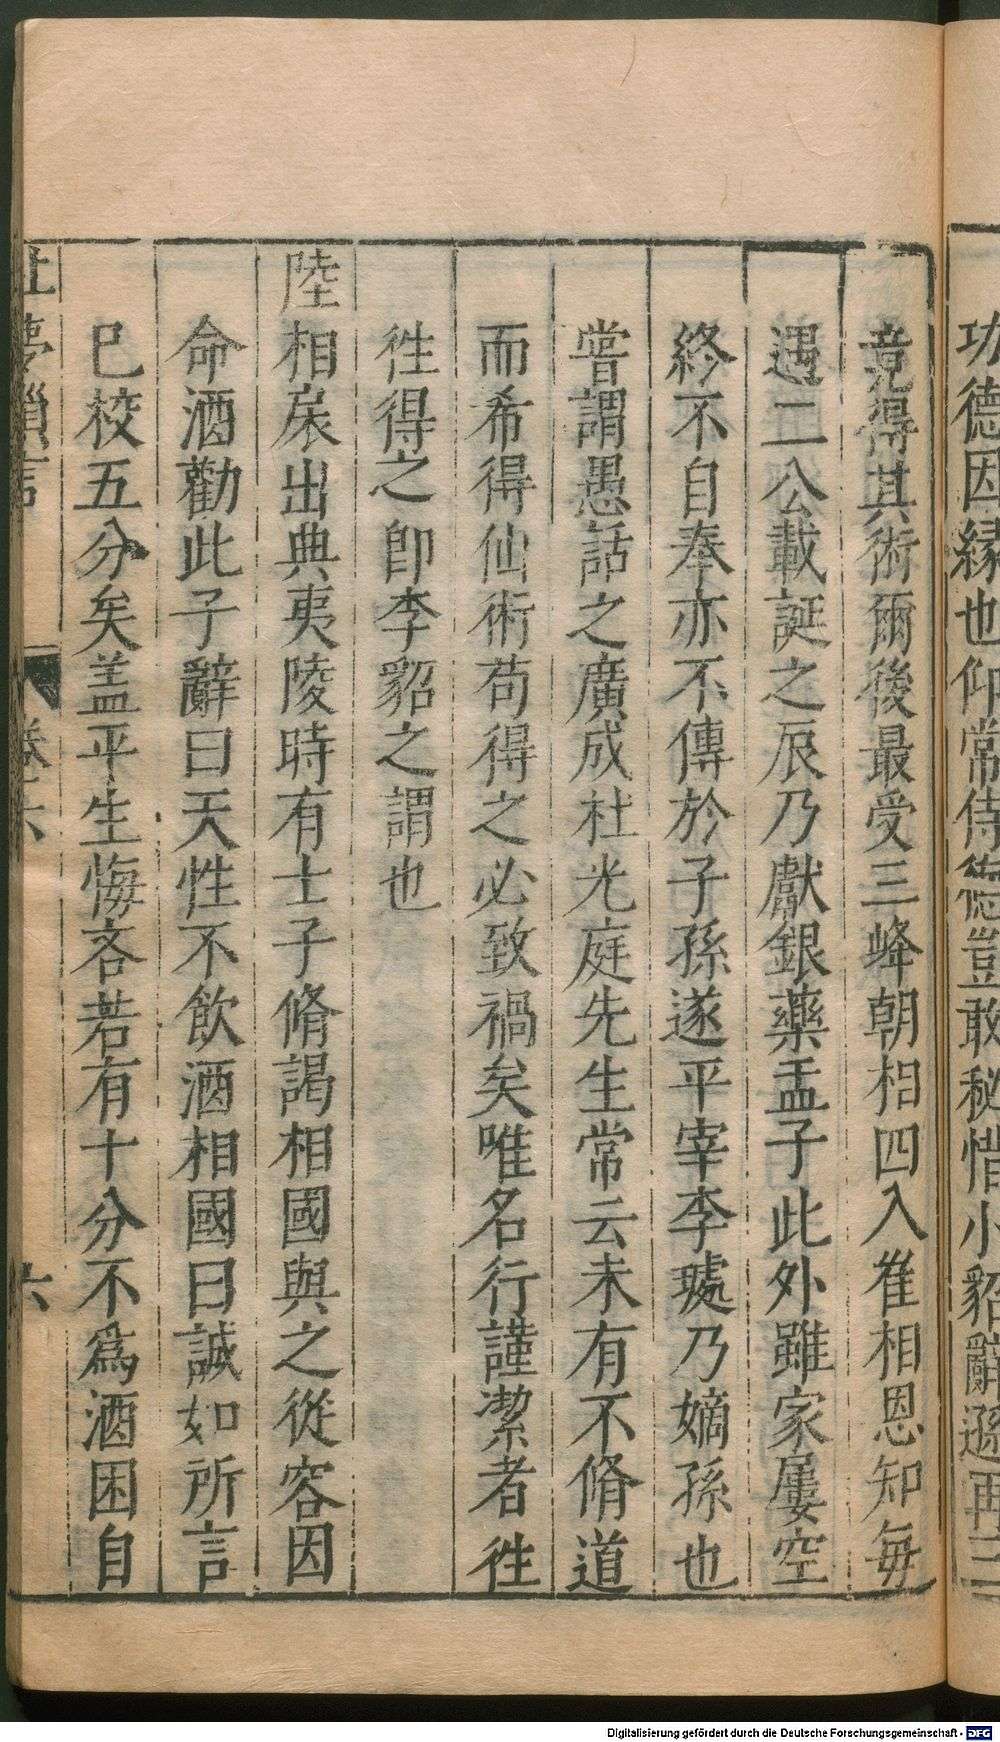 功德因緣也仰常侍德豈敢秘惜小貂辭遜再三
竟得其術爾後最受三峰朝相四入崔相恩知每
遇二公載誕之辰乃獻銀藥盂子此外雖家屢空
終不自奉亦不傳於子孫遂平宰李璩乃嫡孫也
嘗謂愚話之廣成杜光庭先生常云未有不脩道
而希得仙術苟得之必致禍矣唯名行謹潔者徃
徃得之卽李貂之謂也
陸相扆出典夷陵時有士子脩謁相國與之從容因
命酒勸此子辭曰天性不飲酒相國曰誠如所言
已校五分矣盖平生悔吝若有十分不爲酒困自
夢瑣言 卷六 六
Digitalisierung gefördert durch die Deutsche Forschungsgemeinschaft - DFG